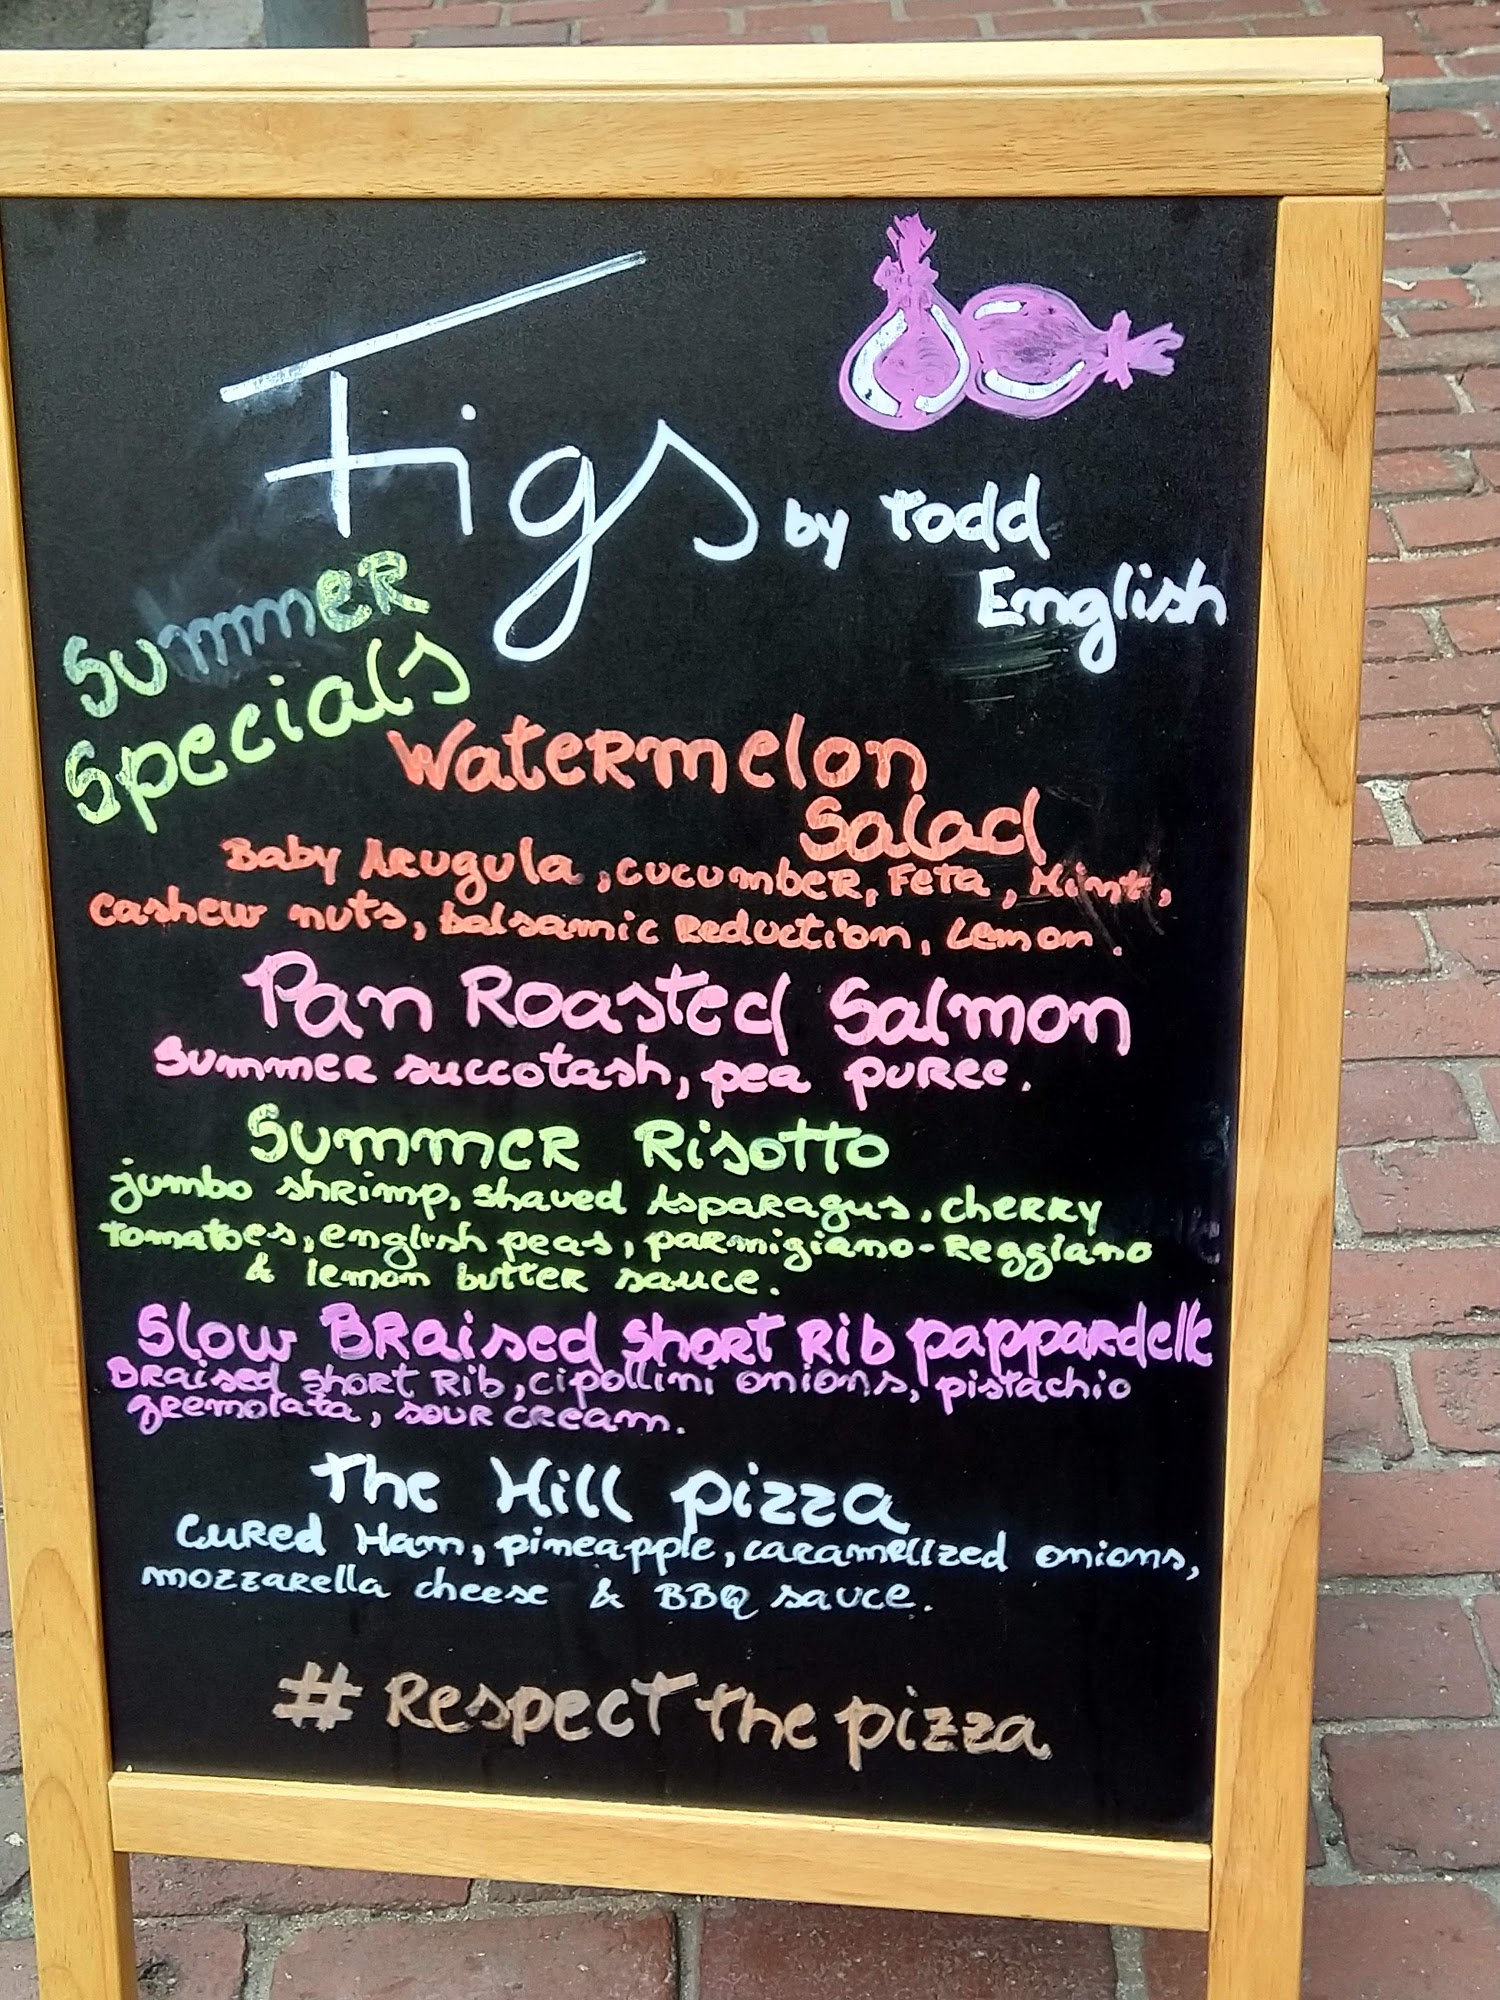 Figs by Todd
English
Summer
Specials
Watermelon
Salad
Baby Arugula, cucumber, Feta, Mint,
cashew nuts, balsamic Reduction, Lemon.
Pan Roasted Salmon
Summer succotash, pea puree.
Summer Risotto
jumbo shrimp, shaved Asparagus, cherry
tomatoes, english peas, parmigiano-Reggiano
& lemon butter sauce.
Slow Braised short Rib pappardelle
Braised short Rib, cipollini onions, pistachio
gremolata, sour cream.
The Hill pizza
Cured Ham, pineapple, caramelized onions,
mozzarella cheese & BBQ sauce.
# Respect the pizza